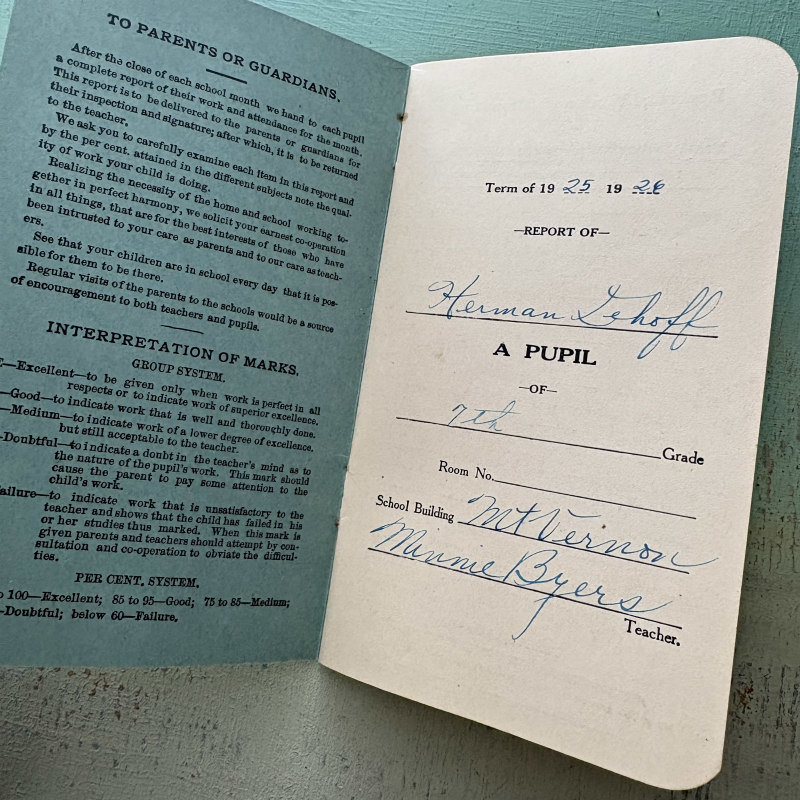 TO PARENTS OR GUARDIANS.
After the close of each school month we hand to each pupil
a complete report of their work and attendance for the month.
This report is to be delivered to the parents or guardians for
their inspection and signature; after which, it is to be returned
to the teacher.
We ask you to carefully examine each item in this report and
by the per cent. attained in the different subjects note the qual-
ity of work your child is doing.
Realizing the necessity of the home and school working to-
gether in perfect harmony, we solicit your earnest co-operation
in all things, that are for the best interests of those who have
been intrusted to your care as parents and to our care as teach-
ers.
See that your children are in school every day that it is pos-
sible for them to be there.
Regular visits of the parents to the schools would be a source
of encouragement to both teachers and pupils.
INTERPRETATION OF MARKS.
GROUP SYSTEM.
E—Excellent—to be given only when work is perfect in all
respects or to indicate work of superior excellence.
—Good—to indicate work that is well and thoroughly done.
—Medium—to indicate work of a lower degree of excellence,
but still acceptable to the teacher.
-Doubtful—to indicate a doubt in the teacher's mind as to
the nature of the pupil's work. This mark should
cause the parent to pay some attention to the
child's work.
ailure—to indicate work that is unsatisfactory to the
teacher and shows that the child has failed in his
or her studies thus marked. When this mark is
given parents and teachers should attempt by con-
sultation and co-operation to obviate the difficul-
ties.
PER CENT. SYSTEM.
o 100—Excellent; 85 to 95—Good; 75 to 85—Medium;
-Doubtful; below 60—Failure.
Term of 19 25 19 26
—REPORT OF—
Herman Lehoff
A PUPIL
—OF—
7th Grade
Room No.
School Building Mt Vernon
Minnie Byers
Teacher.